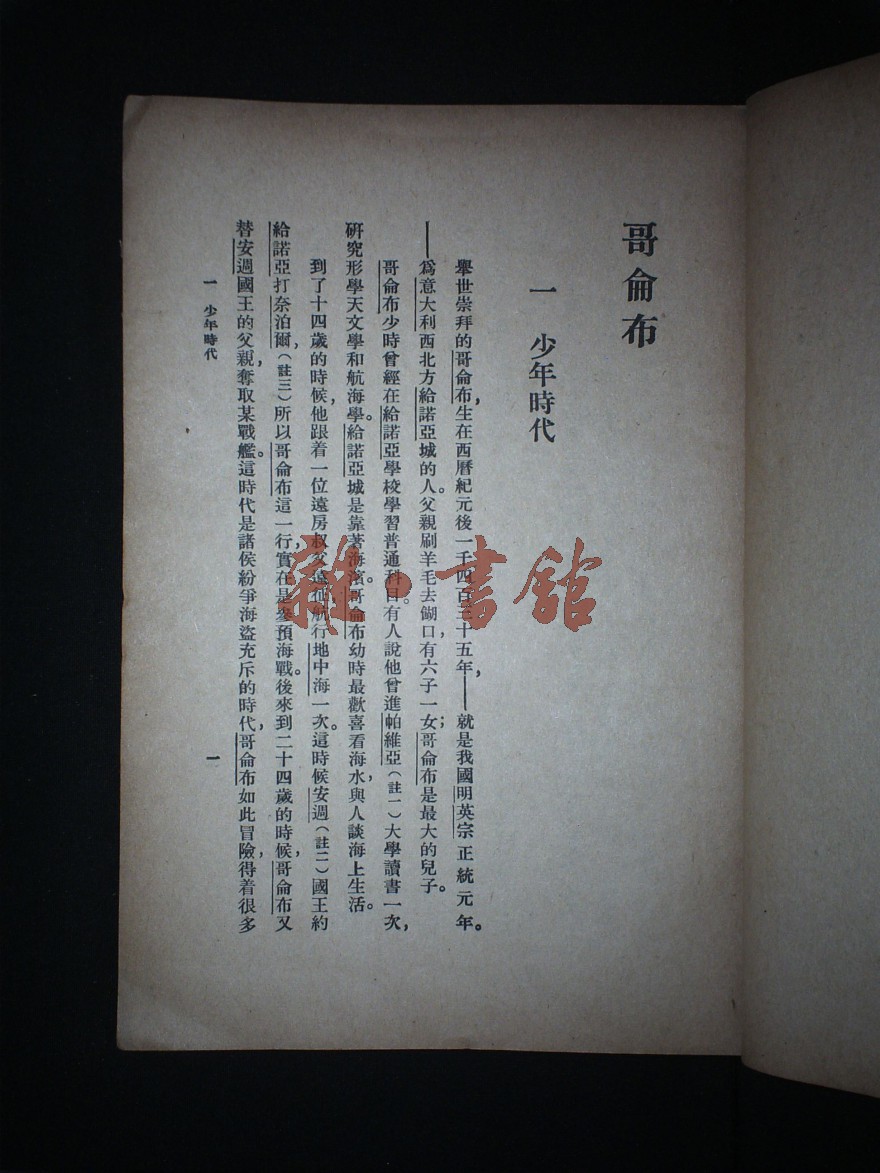 哥侖布
一　少年時代
舉世崇拜的哥侖布，生在西曆紀元後一千四百三十五年，——就是我國明英宗正統元年。
——爲意大利西北方給諾亞城的人。父親刷羊毛去餬口，有六子一女；哥侖布是最大的兒子。
哥侖布少時曾經在給諾亞學校學習普通科目。有人說他曾進帕維亞（註一）大學讀書一次，
研究形學天文學和航海學。給諾亞城是靠著海濱。哥侖布幼時最歡喜看海水，與人談海上生活。
到了十四歲的時候，他跟着一位遠房叔父遠征航行地中海一次。這時候安週（註二）國王約
給諾亞打奈泊爾，（註三）所以哥侖布這一行，實在是參預海戰。後來到二十四歲的時候，哥侖布又
替安週國王的父親，奪取某戰艦。這時代是諸侯紛爭海盜充斥的時代，哥侖布如此冒險，得着很多
一　少年時代
一
雜·書館